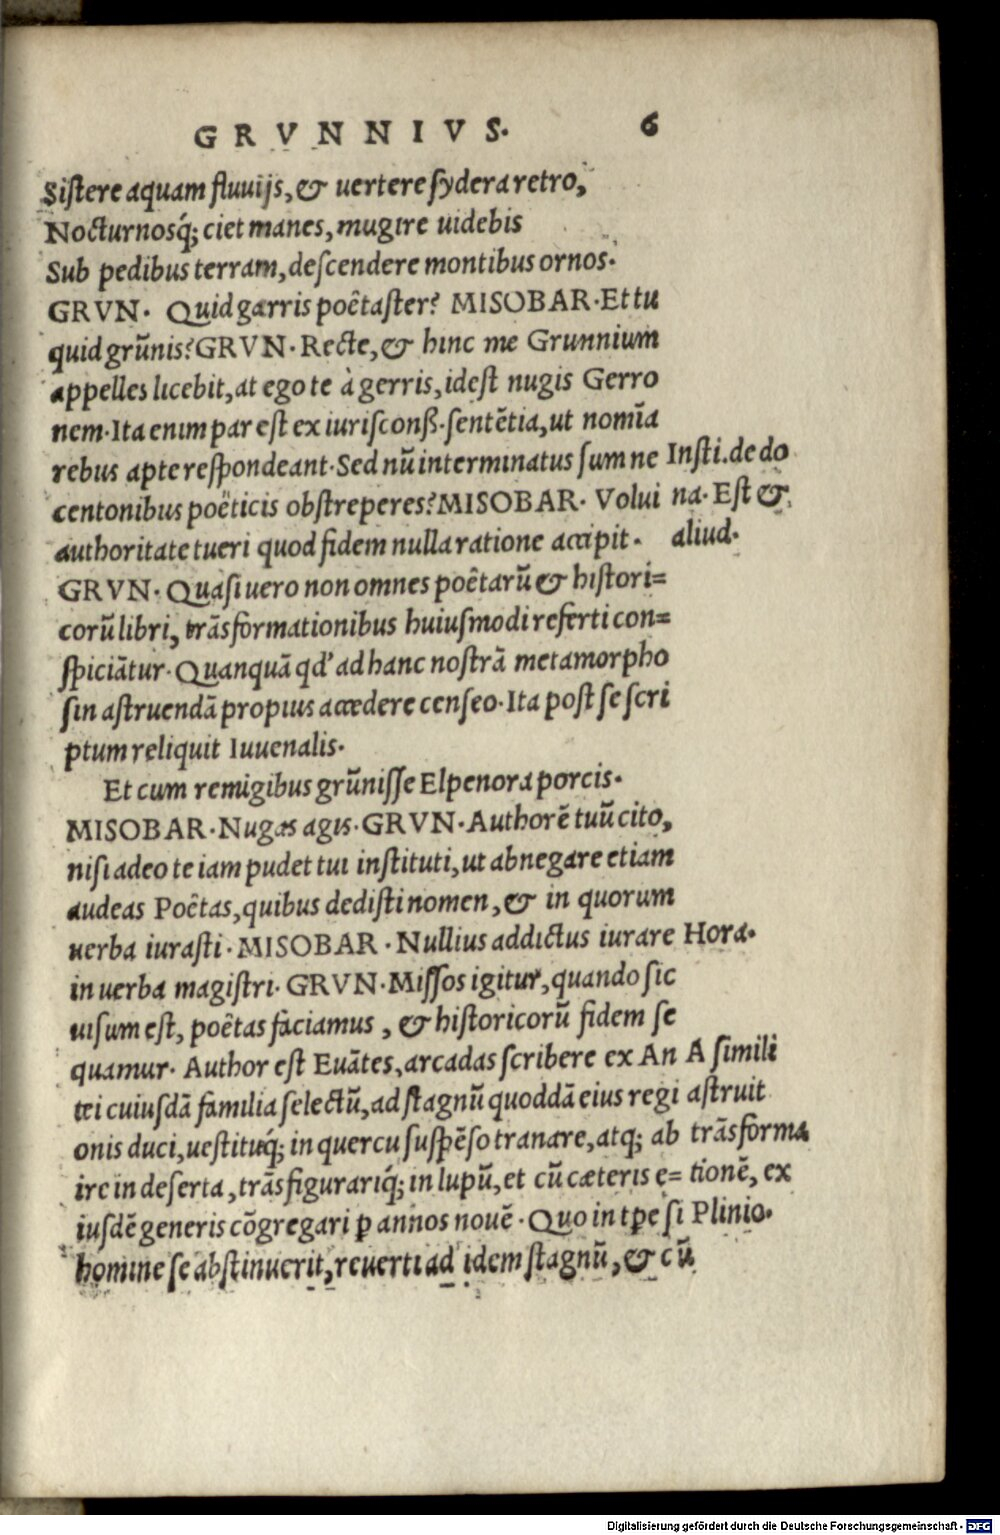 GRVNNIVS. 6
Sistere aquam fluuijs, & uertere sydera retro,
Nocturnosq́; ciet manes, mugire uidebis
Sub pedibus terram, descendere montibus ornos.
GRVN. Quid garris poêtaster? MISOBAR. Et tu
quid grũnis? GRVN. Recte, & hinc me Grunnium
appelles licebit, at ego te à gerris, idest nugis Gerro
nem. Ita enim par est ex iurisconß. sentẽtia, ut nomĩa
rebus apte respondeant. Sed nũ interminatus sum ne
centonibus poëticis obstreperes? MISOBAR. Volui
authoritate tueri quod fidem nulla ratione accipit.
Insti. de do
na. Est &
aliud.
GRVN. Quasi uero non omnes poêtarũ & histori=
corũ libri, trãsformationibus huiusmodi referti con=
spiciãtur. Quanquã qd' ad hanc nostrã metamorpho
sin astruendã propius accedere censeo. Ita post se scri
ptum reliquit Iuuenalis.
Et cum remigibus grũnisse Elpenora porcis.
MISOBAR. Nugas agis. GRVN. Authorẽ tuũ cito,
nisi adeo te iam pudet tui instituti, ut abnegare etiam
audeas Poêtas, quibus dedisti nomen, & in quorum
uerba iurasti. MISOBAR. Nullius addictus iurare
Hora.
in uerba magistri. GRVN. Missos igitur, quando sic
uisum est, poêtas faciamus, & historicorũ fidem se
quamur. Author est Euãtes, arcadas scribere ex An
tei cuiusdã familia selectũ, ad stagnũ quoddã eius regi
onis duci, uestituq́; in quercu suspẽso tranare, atq; ab
ire in deserta, trãsfigurariq́; in lupũ, et cũ cæteris e=
iusdẽ generis cõgregari p annos nouẽ. Quo in tpe si
homine se abstinuerit, reuerti ad idem stagnũ, & cũ
A simili
astruit
trãsforma
tionẽ, ex
Plinio.
Digitalisierung gefördert durch die Deutsche Forschungsgemeinschaft - DFG